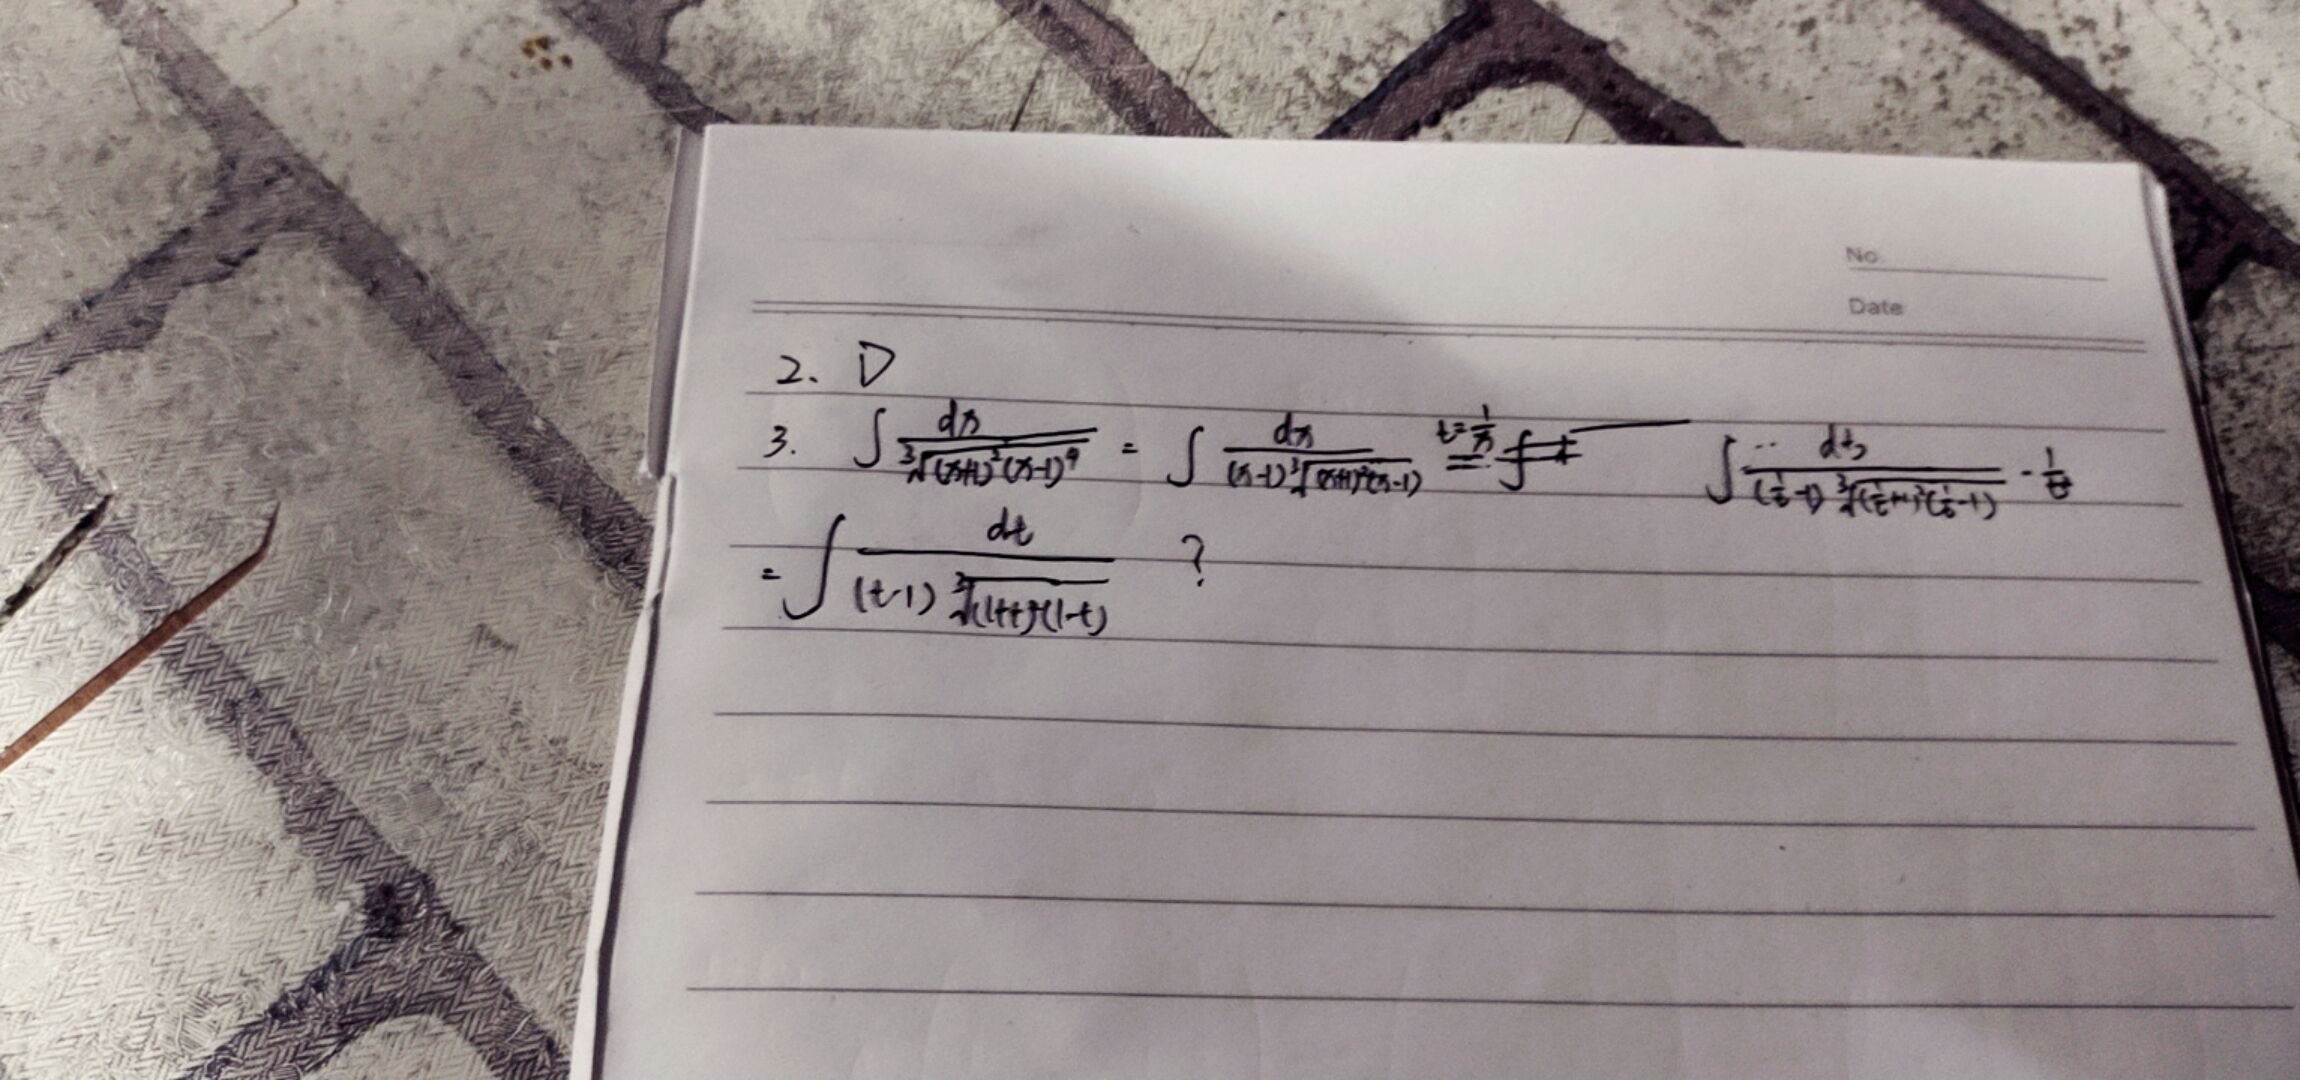 No
Date
2. D
3. ∫ dx / ∛((x+1)²(x-1)⁴) = ∫ dx / ((x-1)∛((x+1)²(x-1))) t=1/x = ∫ dt / ((1/t-1)∛((1/t+1)²(1/t-1))) · 1/t²
= ∫ dt / ((t-1)∛((1+t)²(1-t))) ?